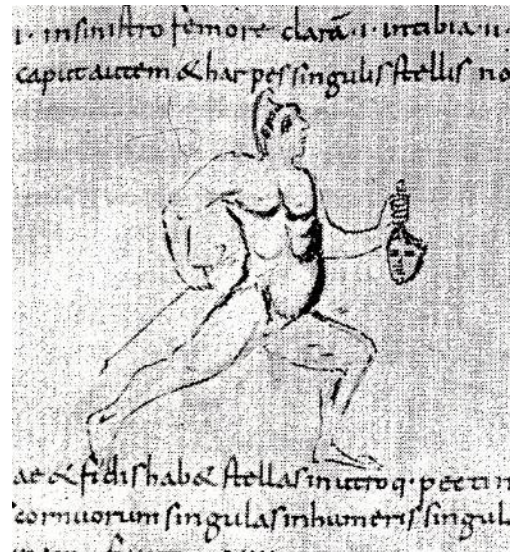 ·i· insinistro femore clarā ·i· intibia ·ii·
caput autem & harpes singulis stellis no
ae & fidis hab& stellas inutroq· pectin
cornuorum singulas inhumeris singul